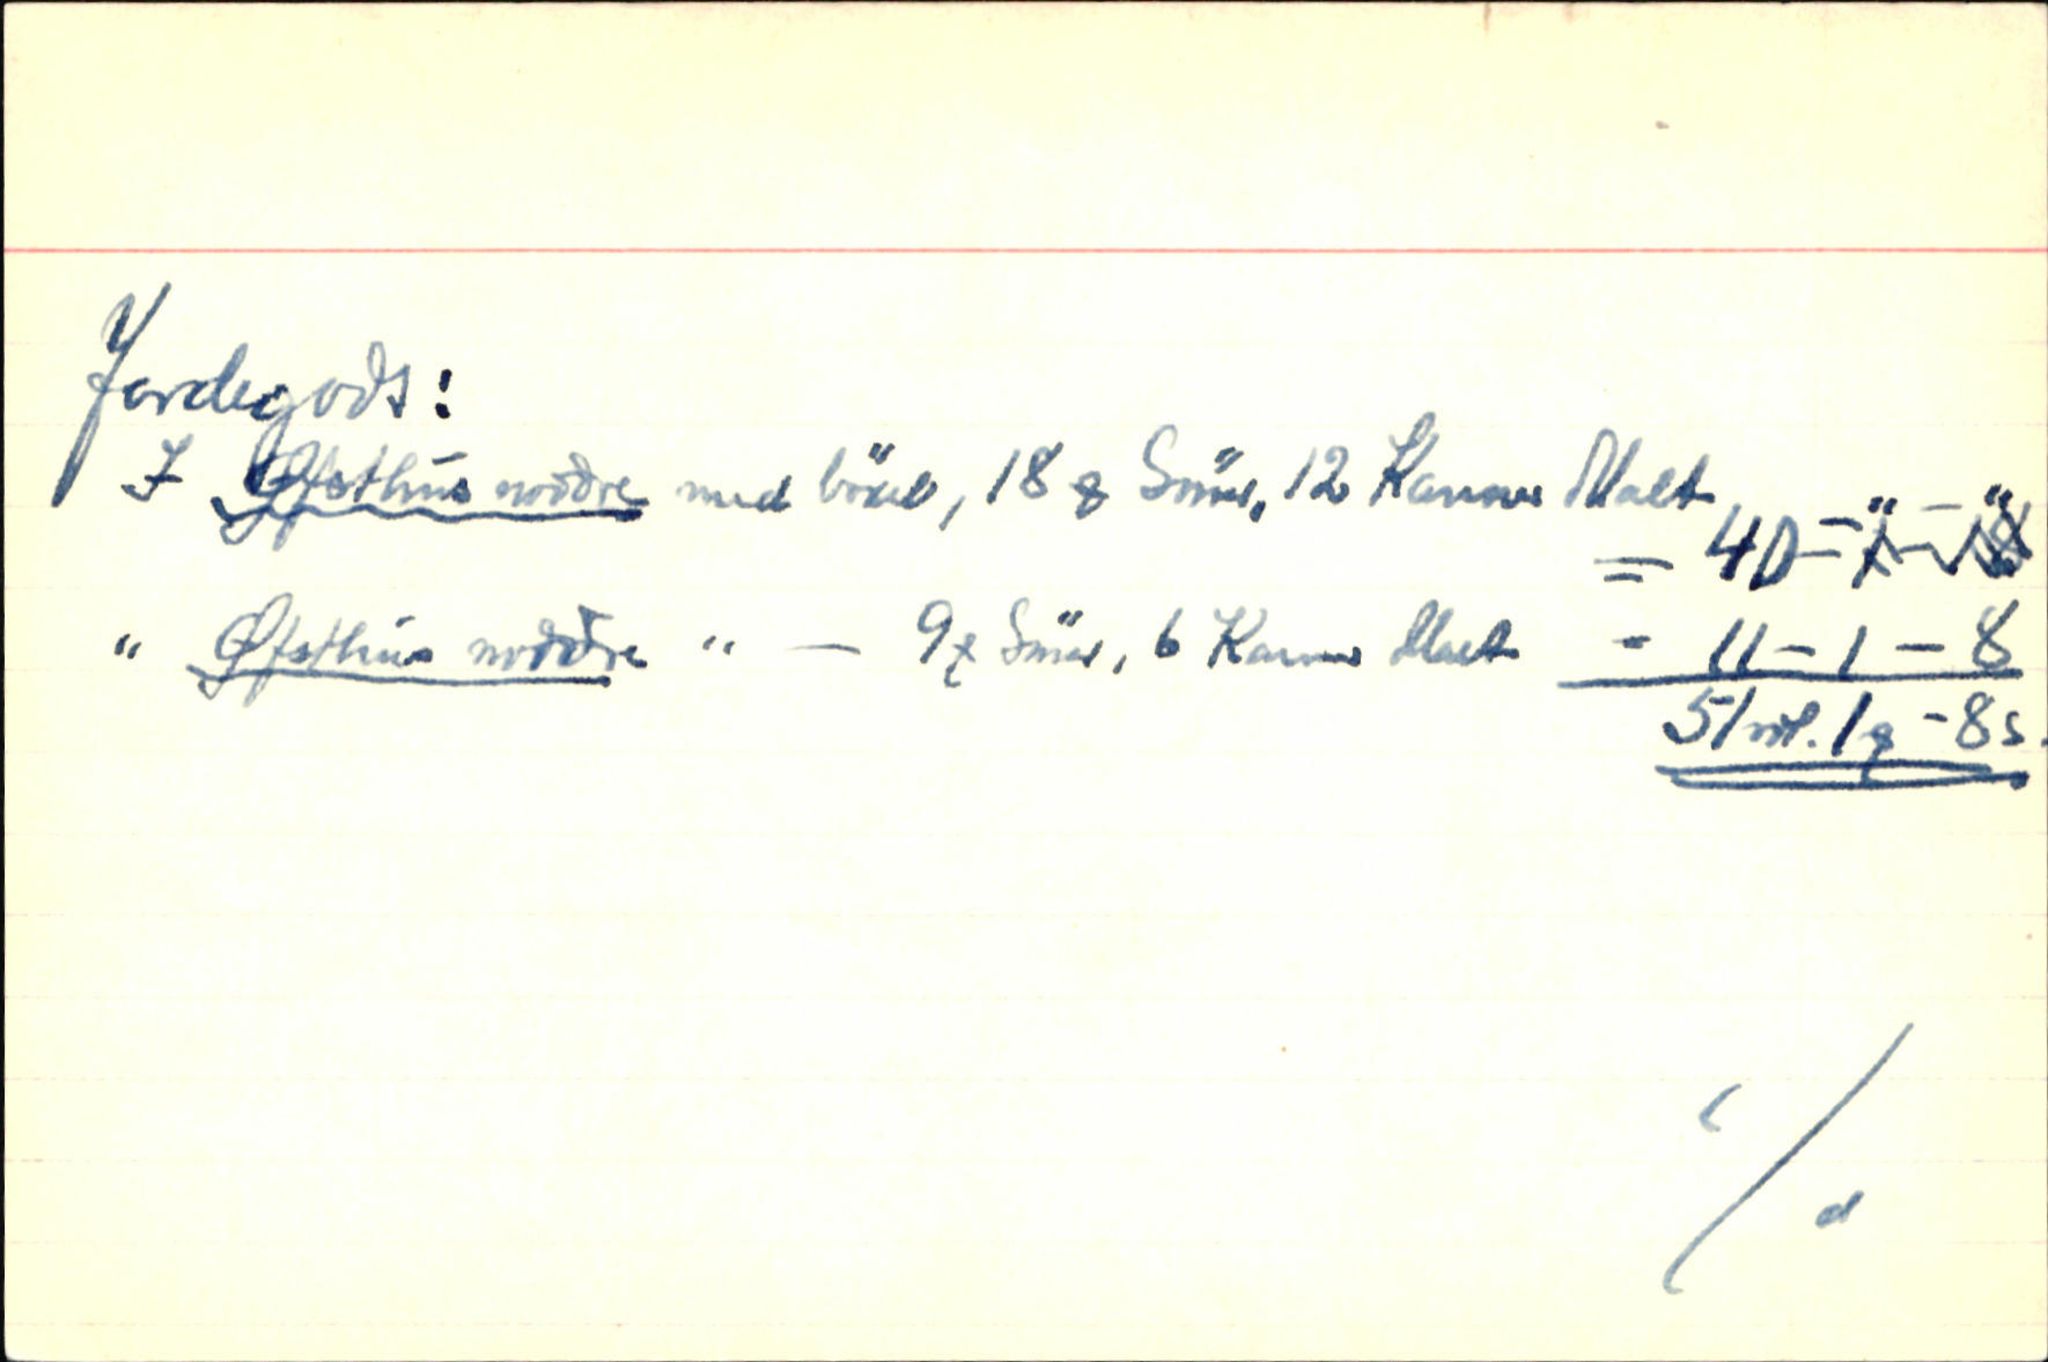 Jordegods:
I Øfsthüs nordre med böxel, 18 ȝ Smör, 12 Kanner Malt
= 40 - " - "
" Øfsthüs nordre " — 9 ȝ Smör, 6 Kanner Malt = 11 - 1 - 8
51 rdl. 1 ȝ - 8 s.
c/d